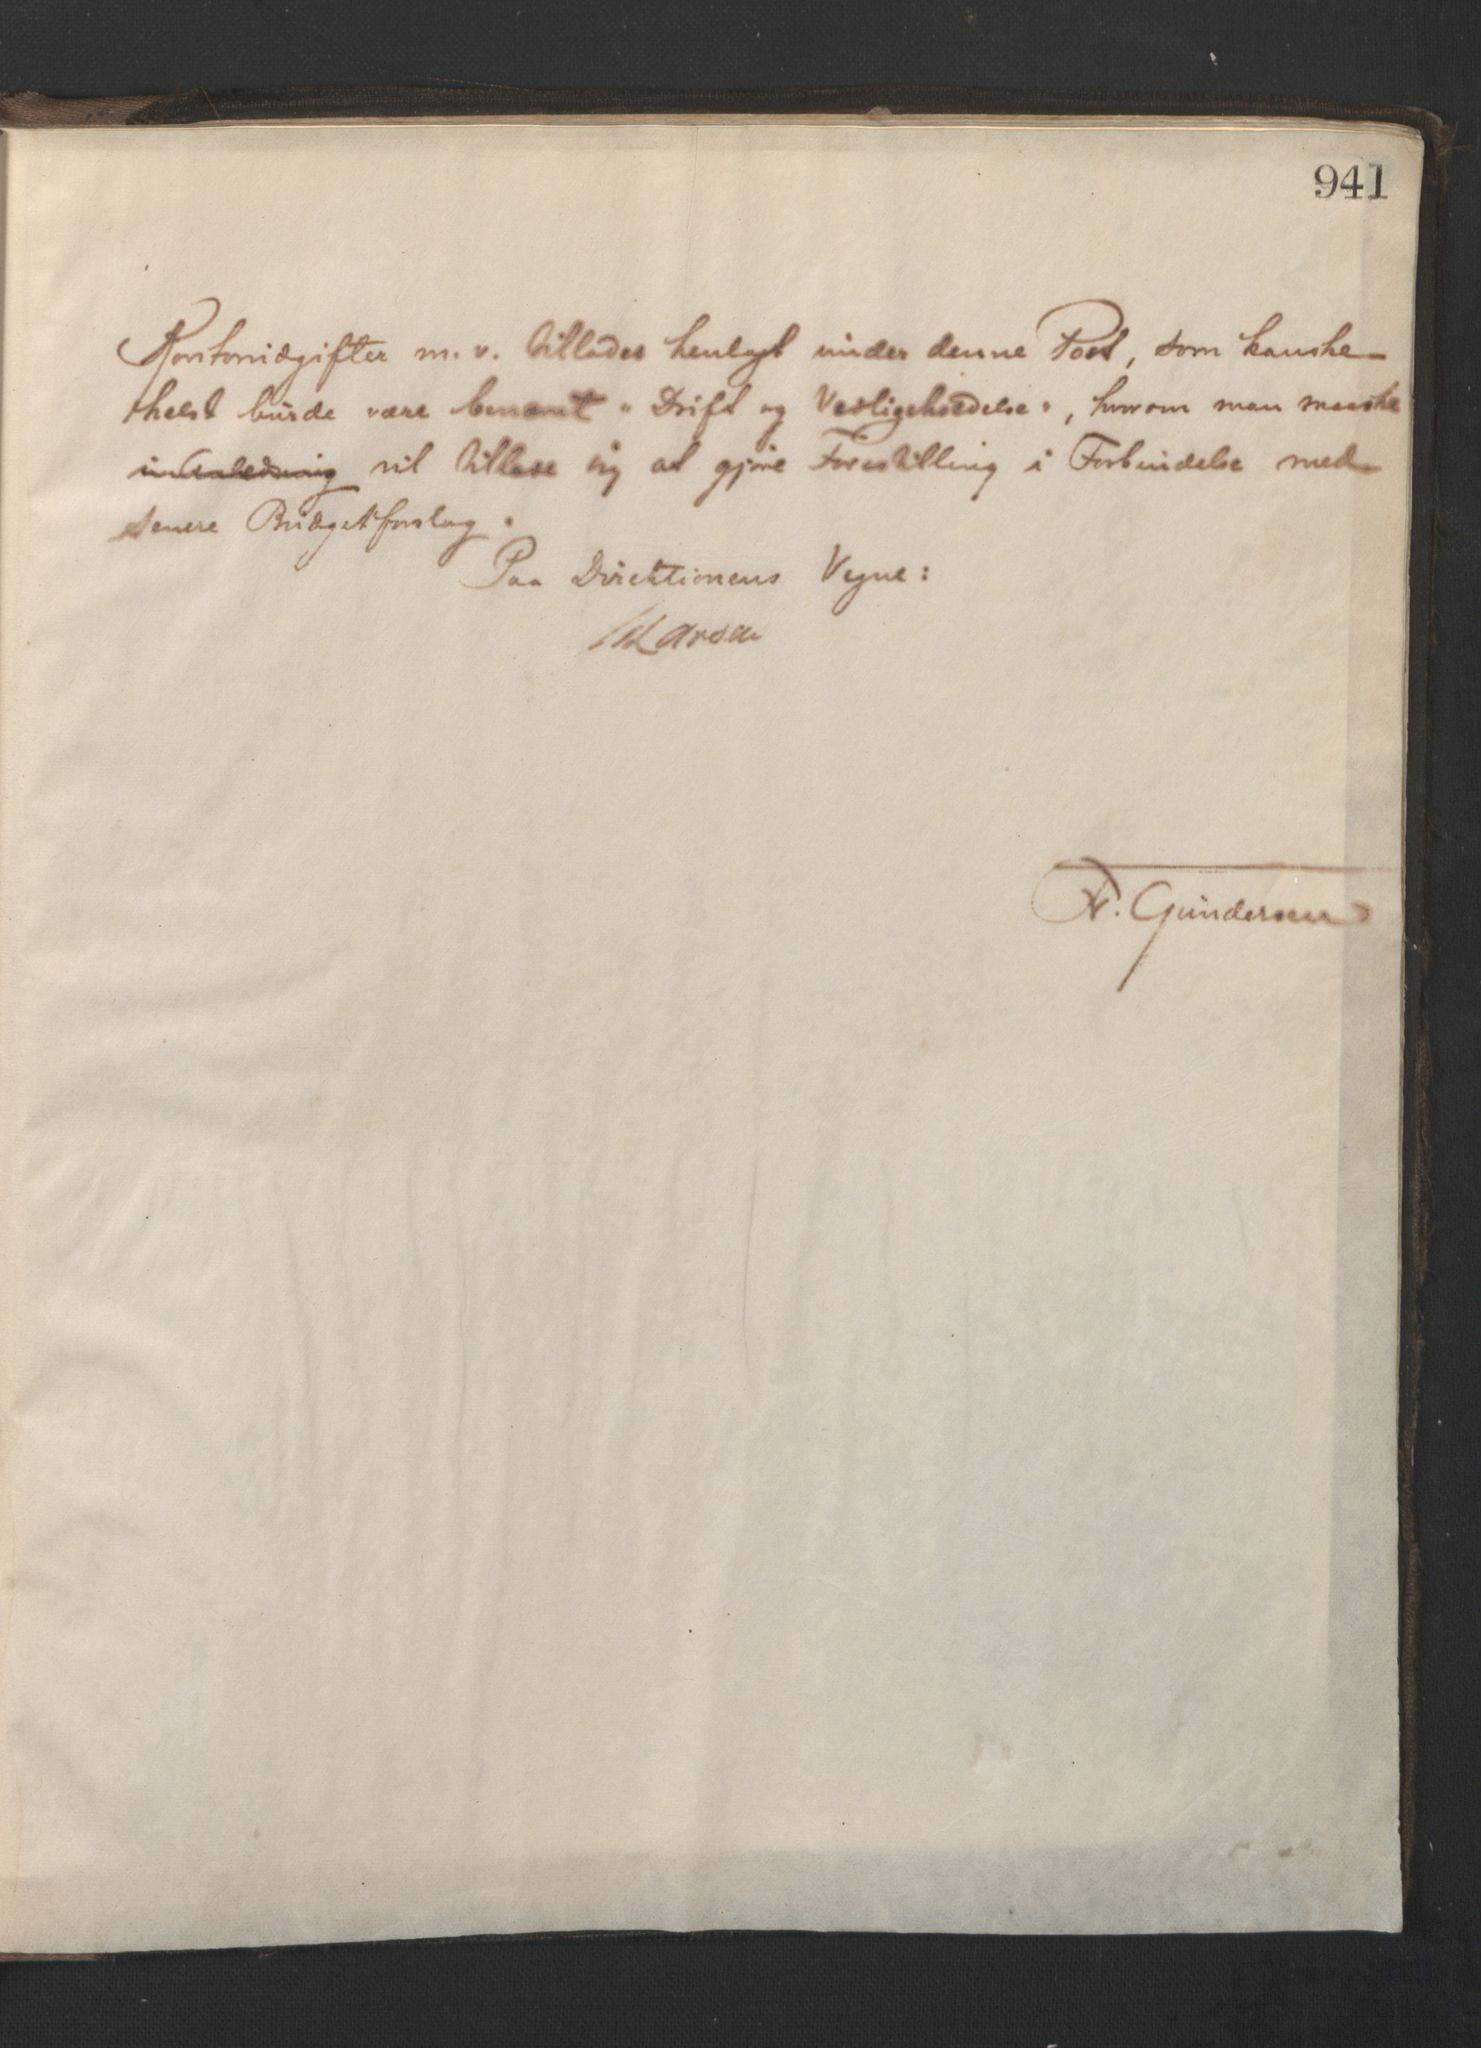 941
Kontorudgifter m. v. tillades henlagt under denne Post, som kanske
helst burde være benævnt "Drift og Vedligeholdelse", hvorom man maaske
i Anledning vil tillade sig at gjøre Forestilling i Forbindelse med
senere Budgetforslag.
Paa Direktionens Vegne:
Larsen
Gundersen